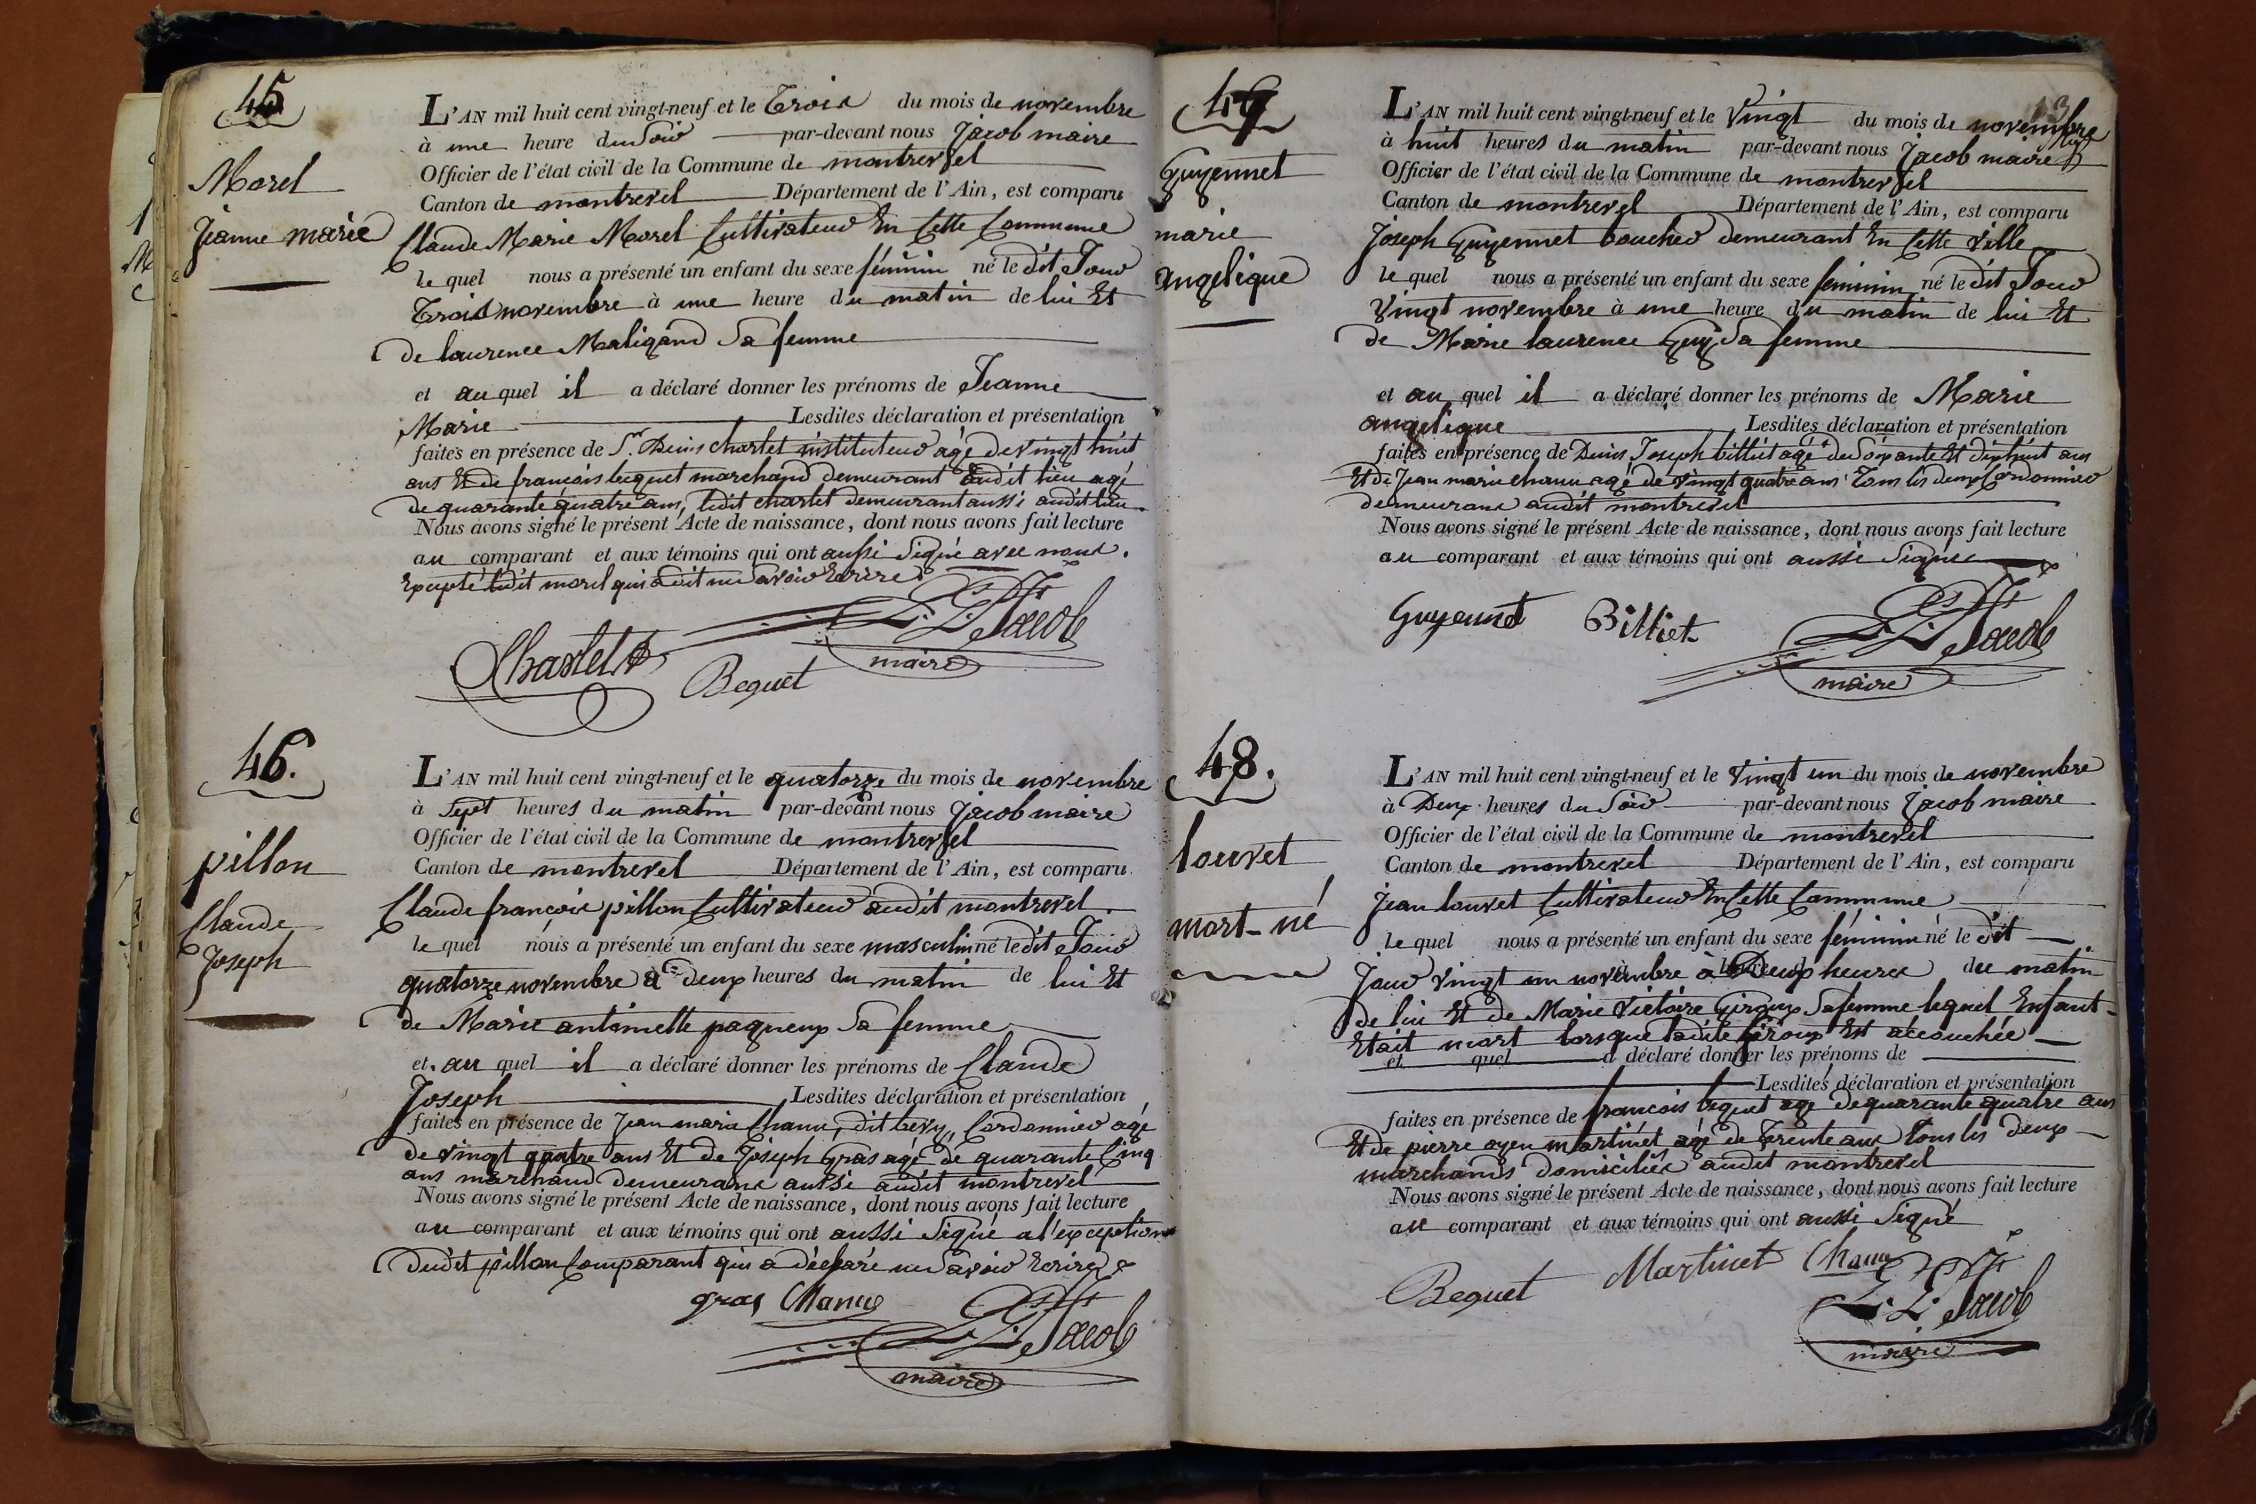 45
Morel
Jeanne marie
L'AN mil huit cent vingt-neuf et le Trois du mois de novembre
à une heure du Soir par-devant nous Jacob maire
Officier de l'état civil de la Commune de montrevel
Canton de montrevel Département de l'Ain, est comparu
Claude Marie Morel Cultivateur En Cette Commune
le quel nous a présenté un enfant du sexe féminin né le dit Jour
Trois novembre à une heure du matin de lui Et
de laurence Maligand Sa femme
et au quel il a déclaré donner les prénoms de Jeanne
Marie Lesdites déclaration et présentation
faites en présence de Sr. Denis Chartet instituteur agé de vingt huit
ans Et de françois bequet marchand demeurant audit lieu agé
de quarante quatre ans, ledit chartet demeurant aussi audit lieu.
Nous avons signé le présent Acte de naissance, dont nous avons fait lecture
au comparant et aux témoins qui ont aussi Signé avec nous.
Excepté ledit morel qui a dit ne Savoir Ecrire
Chartet Bequet Jacob
maire
46.
pillon
Claude
Joseph
L'AN mil huit cent vingt-neuf et le quatorze du mois de novembre
à Sept heures du matin par-devant nous Jacob maire
Officier de l'état civil de la Commune de montrevel
Canton de montrevel Département de l'Ain, est comparu
Claude françois pillon Cultivateur audit montrevel
le quel nous a présenté un enfant du sexe masculin né le dit Jour
quatorze novembre à deux heures du matin de lui Et
de Marie antoinette pagneux Sa femme
et au quel il a déclaré donner les prénoms de Claude
Joseph Lesdites déclaration et présentation
faites en présence de Jean marie Chanu, dit Cordonnier agé
de vingt quatre ans Et de Joseph Gras agé de quarante Cinq
ans marchand demeurant aussi audit montrevel
Nous avons signé le présent Acte de naissance, dont nous avons fait lecture
au comparant et aux témoins qui ont aussi Signé a l'exception
dudit pillon Comparant qui a déclaré ne Savoir Ecrire
gras Chanu Jacob
maire
13
47
Guyennet
marie
angelique
L'AN mil huit cent vingt-neuf et le Vingt du mois de novembre
à huit heures du matin par-devant nous Jacob maire
Officier de l'état civil de la Commune de montrevel
Canton de montrevel Département de l'Ain, est comparu
Joseph Guyennet boucher demeurant En Cette Ville
le quel nous a présenté un enfant du sexe feminin né le dit Jour
Vingt novembre à une heure du matin de lui Et
de Marie laurence Guy Sa femme
et au quel il a déclaré donner les prénoms de Marie
angelique Lesdites déclaration et présentation
faites en présence de Denis Joseph billiet agé de Soixante Et dix huit ans
Et de Jean marie chanu agé de vingt quatre ans Tous les deux Cordonnier
demeurans audit montrevel
Nous avons signé le présent Acte de naissance, dont nous avons fait lecture
au comparant et aux témoins qui ont aussi Signés
Guyennet Billiet Jacob
maire
48.
louvet
mort-né
L'AN mil huit cent vingt-neuf et le Vingt un du mois de novembre
à Deux heures du Soir par-devant nous Jacob maire
Officier de l'état civil de la Commune de montrevel
Canton de montrevel Département de l'Ain, est comparu
Jean louvet Cultivateur En Cette Commune
le quel nous a présenté un enfant du sexe féminin né le dit
Jour vingt un novembre à Deux heures du matin
de lui Et de Marie Victoire Giroux Sa femme lequel Enfant
Etait mort lorsque ladite Giroux Est accouchée
et quel a déclaré donner les prénoms de
Lesdites déclaration et présentation
faites en présence de françois bequet agé de quarante quatre ans
Et de pierre oyen martinet agé de Trente ans Tous les deux
marchands domiciliés audit montrevel
Nous avons signé le présent Acte de naissance, dont nous avons fait lecture
au comparant et aux témoins qui ont aussi Signé
Bequet Martinet Jacob
maire